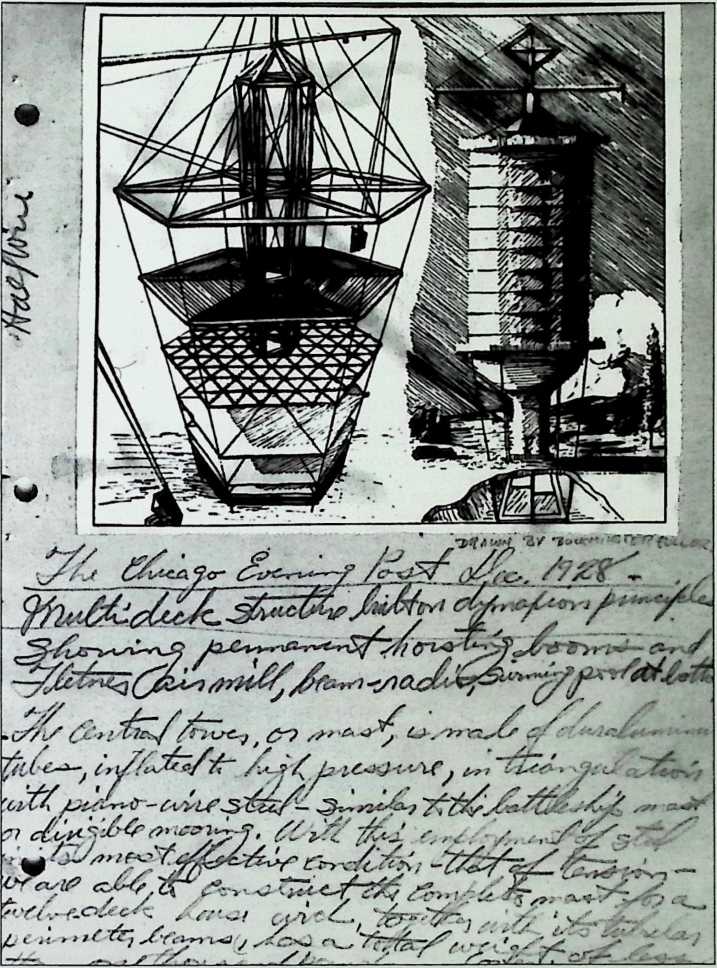 Half Size
DRAWN BY BUCKMINSTER FULLER
The Chicago Evening Post Dec. 1928 -
Multideck structure built on dymaxion principle
showing permanent hoisting booms and
Fletner air mill, beam-radio, swimming pool at bottom
The central tower, or mast, is made of duralumin
tubes, inflated to high pressure, in triangulation
with piano-wire steel - similar to the battleship mast
or dirigible mooring. With this employment of steel
in its most effective condition - that of tension -
we are able to construct the complete mast for a
twelve deck house which, together with its tubular
perimeter beams, has a total weight of less